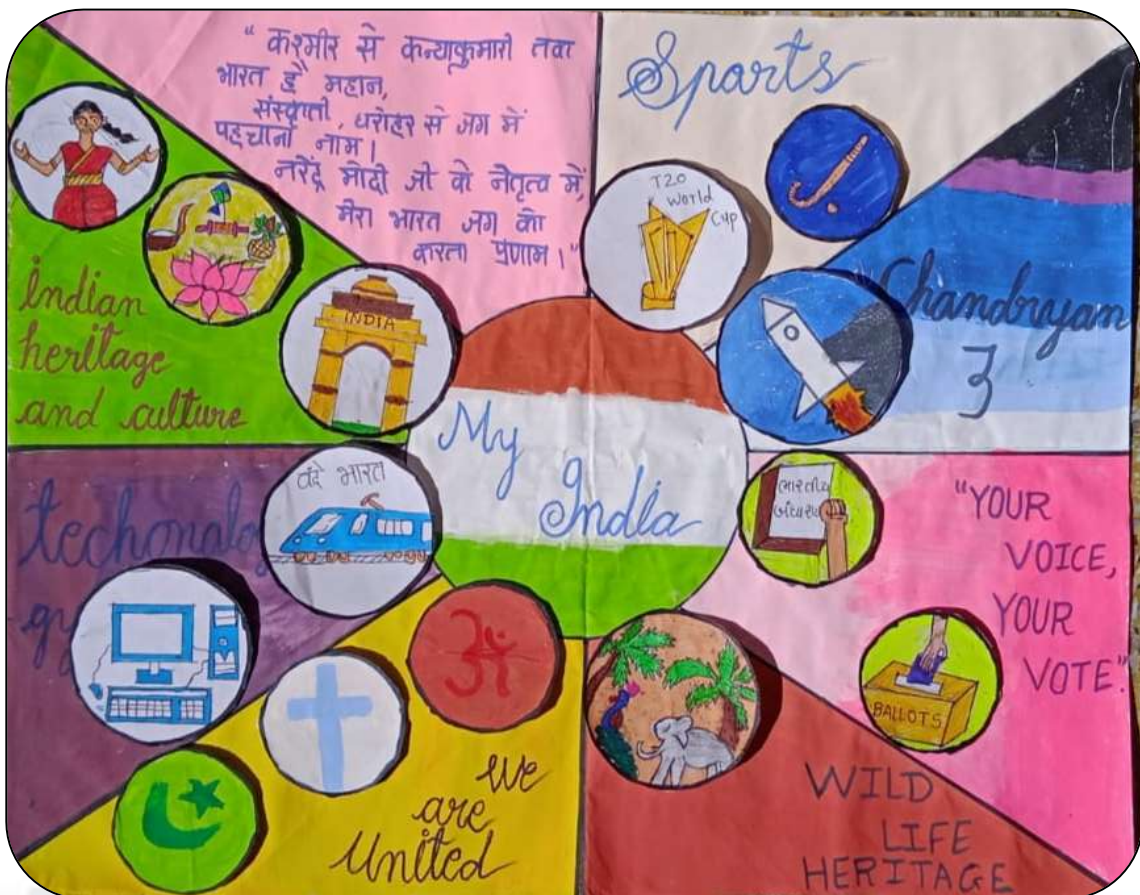 "कश्मीर से कन्याकुमारी तक
भारत है महान,
संस्कृती, धरोहर से जग में
पहचाना नाम।
नरेंद्र मोदी जी के नेतृत्व में,
मेरा भारत जग को
करता प्रणाम।"
Sports
T20
World
Cup
Chandryan
3
Indian
heritage
and culture
INDIA
My
India
techonolo
gy
वंदे भारत
भारतीय
"YOUR
VOICE,
YOUR
VOTE".
BALLOTS
ॐ
We
are
United
WILD
LIFE
HERITAGE